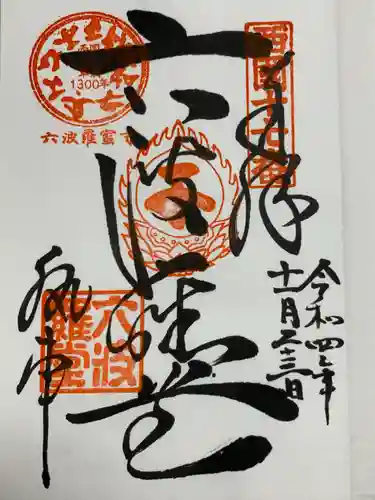 西国十七番
奉拝
令和四年
十一月二十三日
六波羅堂
1300年
六波羅蜜寺
執事
六波
羅堂